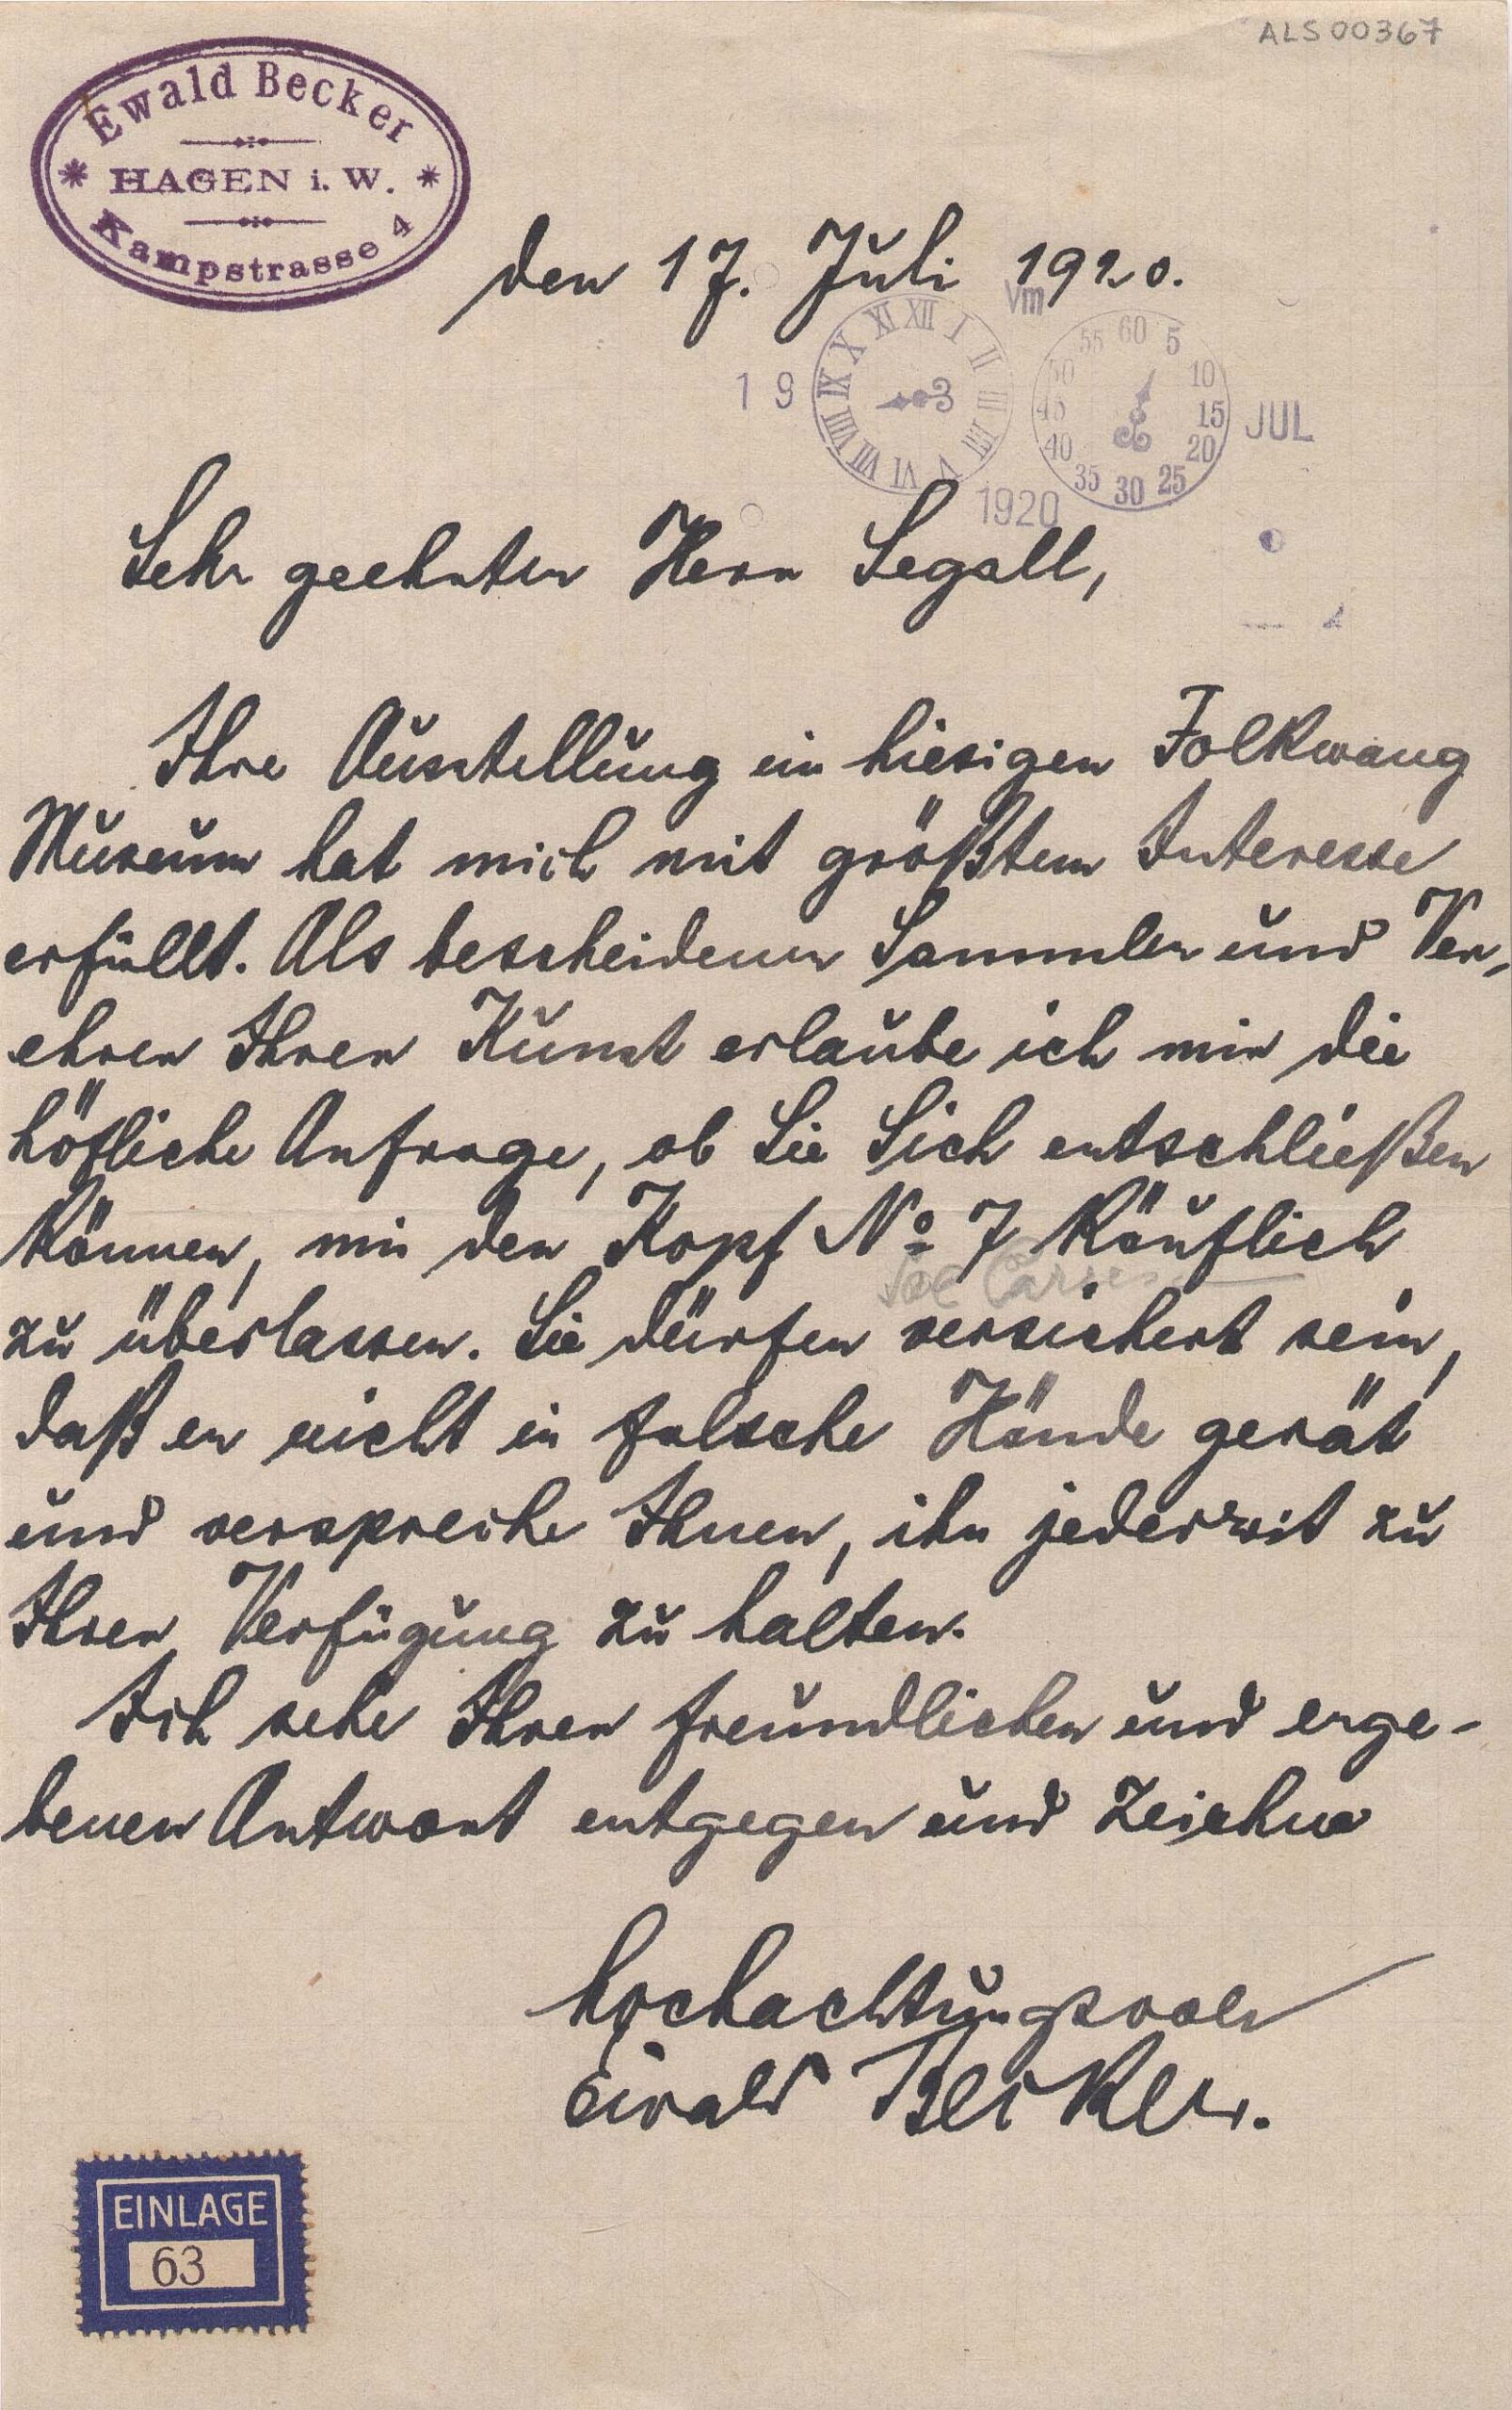 ALS 00367
Ewald Becker
* HAGEN i. W. *
Kampstrasse 4
den 17. Juli 1920.
Vm
19
XII I II III IIII V VI VII VIII IX X XI
60 5 10 15 20 25 30 35 40 45 50 55
JUL
1920
Sehr geehrter Herr Segall,
Ihre Ausstellung im hiesigen Folkwang
Museum hat mich mit größtem Interesse
erfüllt. Als bescheidener Sammler und Ver-
ehrer Ihrer Kunst erlaube ich mir die
höfliche Anfrage, ob Sie Sich entschließen
können, mir den Kopf No 7 käuflich
zu überlassen. Sie dürfen versichert sein,
daß er nicht in falsche Hände gerät
und verspreche Ihnen, ihn jederzeit zu
Ihrer Verfügung zu halten.
Ich sehe Ihrer freundlichen und erge-
benen Antwort entgegen und zeichne
hochachtungsvoll
Ewald Becker.
EINLAGE
63